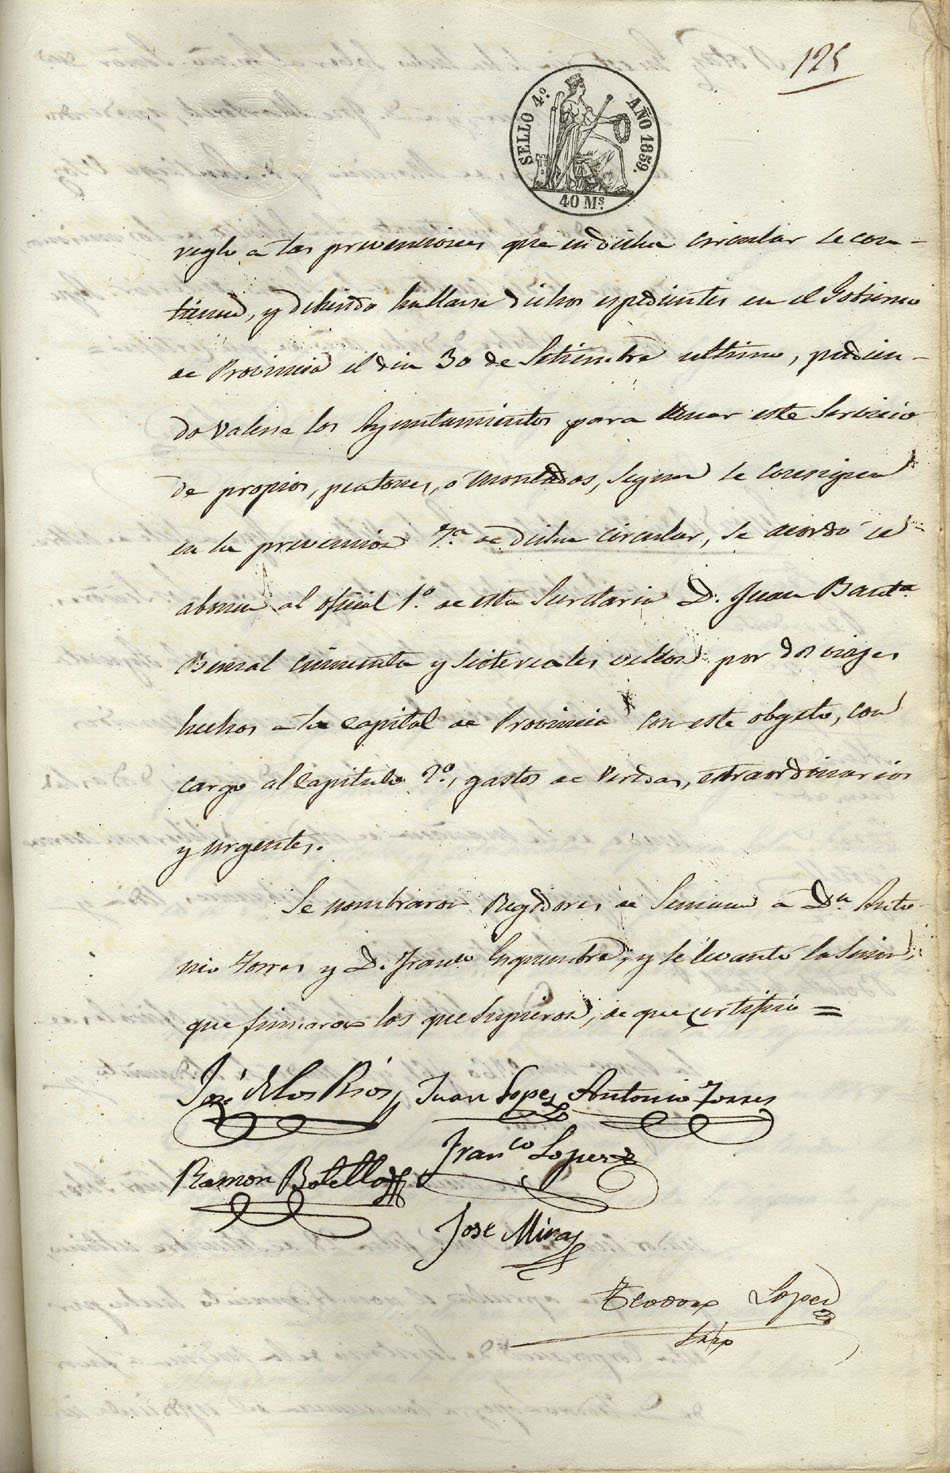 125
SELLO 4.º AÑO 1859.
40 Ms.
reglo a las prevenciones que en dicha circular se con-
tienen, y debiendo hallarse dichos espedientes en el Gobierno
de Provincia el dia 30 de Setiembre ultimo, pudien-
do valerse los Ayuntamientos para llenar este servicio
de propios, peatones, o montados, segun se consigna
en la prevencion 7.ª de dicha circular, se acordó se
abonen al oficial 1.º de esta Secretaria D. Juan Baut.ª
Bernal cincuenta y siete reales vellon por dos viajes
hechos a la capital de Provincia con este obgeto, con
cargo al capitulo 9.º, gastos de veredas, extraordinarios
y urgentes.
Se nombraron Regidores de Semana a Dn. Anto-
nio Torres y D. Franco. y se levantó la Sesion,
que firmaron los que supieron, de que certifico =
José de los Rios Juan Lopez Antonio Torres
Ramon Botella Franco Lopez
José Miras
Teodoro Lopez
Srio